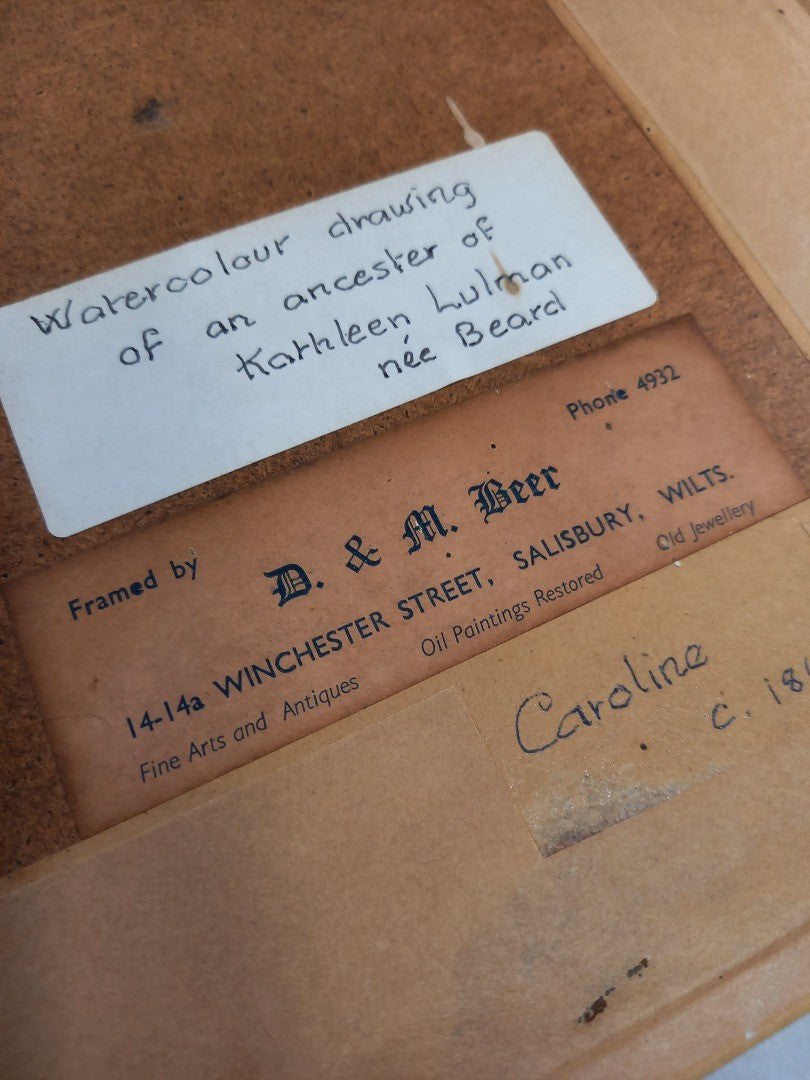 Watercolour drawing
of an ancester of
Kathleen Lulman
née Beard
Phone 4932
Framed by
D. & M. Beer
14-14a WINCHESTER STREET, SALISBURY, WILTS.
Fine Arts and Antiques Oil Paintings Restored Old Jewellery
Caroline
c.